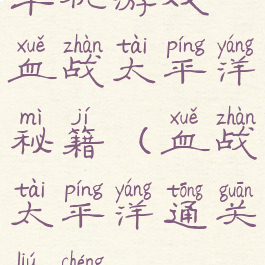 单机游戏
xuě zhàn tài píng yáng
血战太平洋
mì jí xuě zhàn
秘籍（血战
tài píng yáng tōng guān
太平洋通关
liú chéng